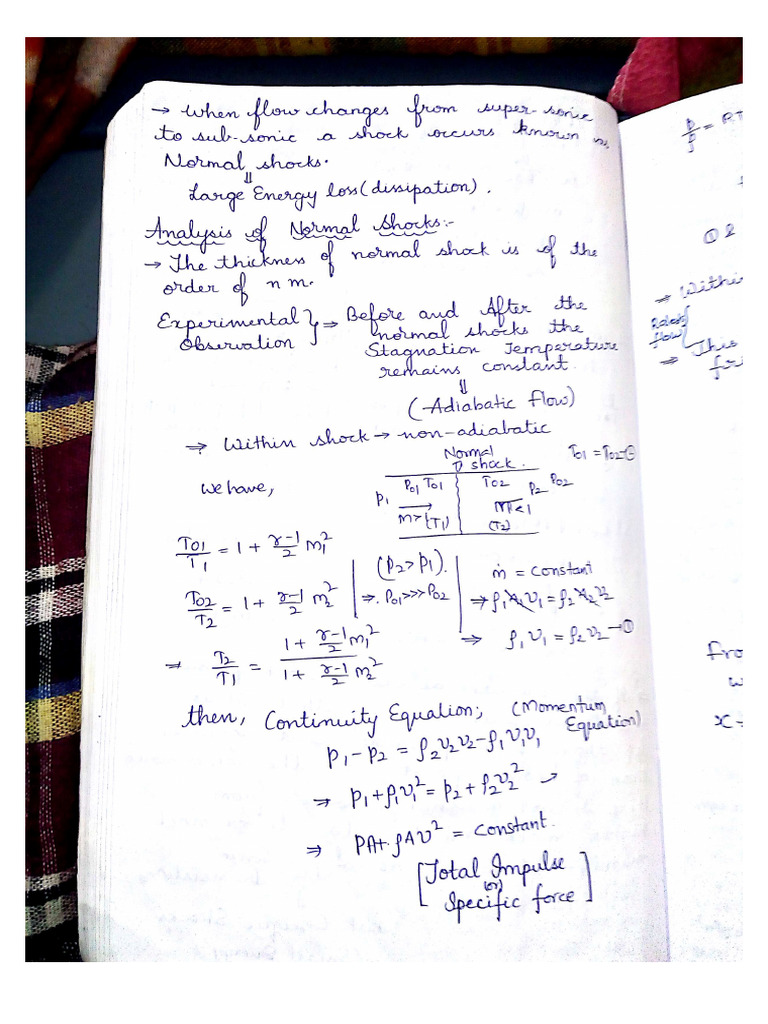 → When flow changes from super-sonic
to sub-sonic a shock occurs known as
Normal shocks.
⇓
Large Energy loss (dissipation).
Analysis of Normal Shocks:-
→ The thickness of normal shock is of the
order of n m.
Experimental } ⇒ Before and After the
Observation normal shocks the
Stagnation Temperature
remains constant.
⇓
(-Adiabatic flow)
⇒ Within shock → non-adiabatic
We have,
Normal
shock.
T01 = T02
P1 P01 T01 T02 P2 P02
(T1) M<1
(T2)
T01/T1 = 1 + γ-1/2 M1²
T02/T2 = 1 + γ-1/2 M2²
(P2 > P1).
⇒ P01 >>> P02
ṁ = constant
⇒ ρ1 A1 v1 = ρ2 A2 v2
⇒ ρ1 v1 = ρ2 v2 → ①
⇒ T2/T1 = 1 + γ-1/2 M1² / 1 + γ-1/2 M2²
then, Continuity Equation; (Momentum
Equation)
P1 - P2 = ρ2 v2 v2 - ρ1 v1 v1
⇒ P1 + ρ1 v1² = P2 + ρ2 v2²
⇒ PA + ρAv² = constant.
[Total Impulse
(or)
Specific force]
P/ρ = RT
⇒ Within
flow
⇒ This
Fro
w
x-